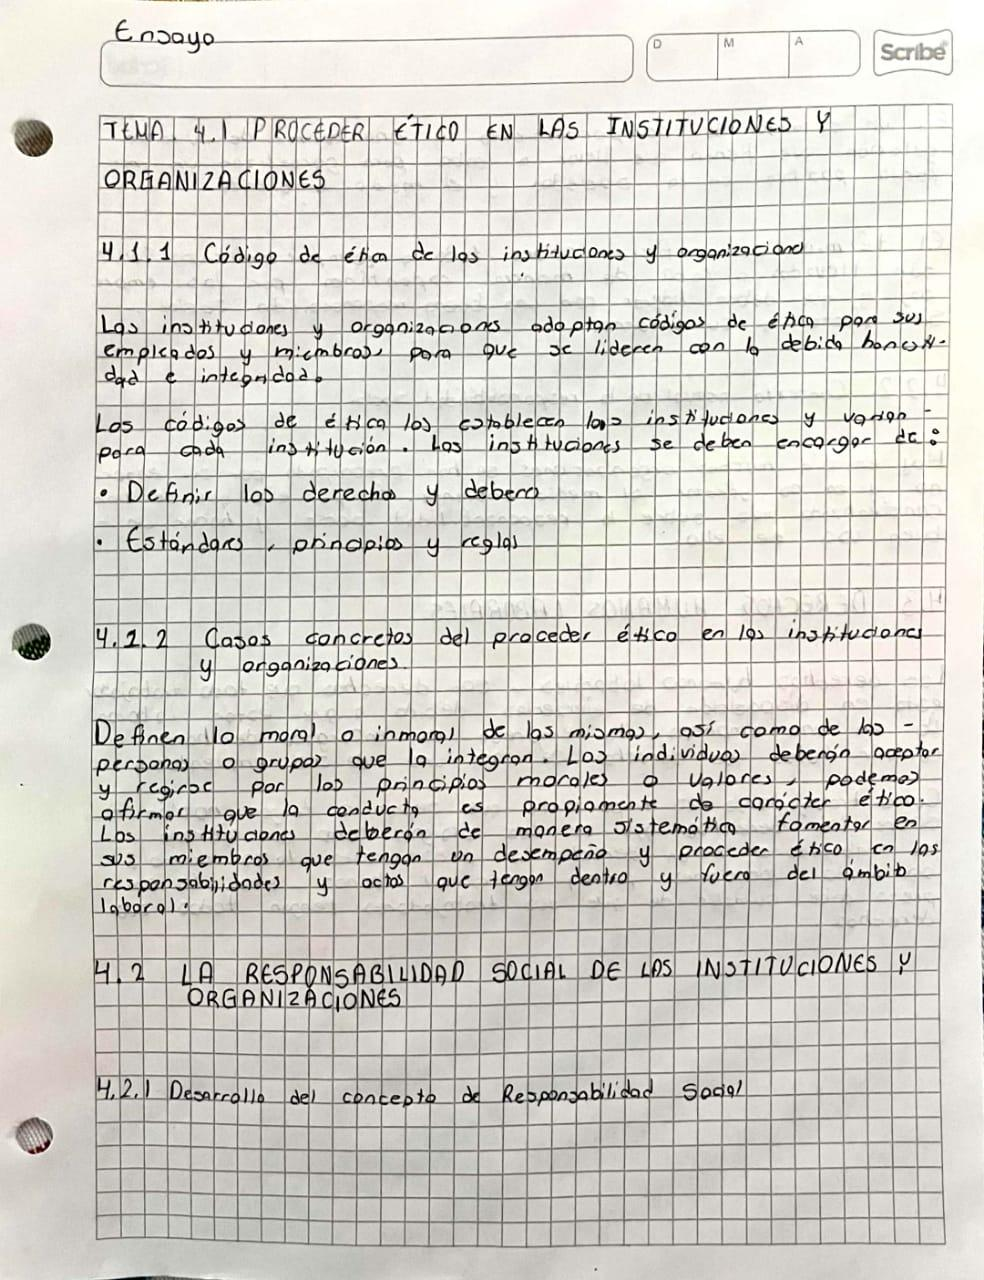 Ensayo
D M A
Scribe
TEMA 4.1 PROCEDER ÉTICO EN LAS INSTITUCIONES Y
ORGANIZACIONES
4.1.1 Código de ética de las instituciones y organizaciones
Las instituciones y organizaciones adoptan códigos de ética para sus
empleados y miembros, para que se lideren con la debida honesti-
dad e integridad.
Los códigos de ética los establecen las instituciones y varían -
para cada institución. Las instituciones se deben encargar de:
• Definir los derechos y deberes
• Estándares, principios y reglas
4.1.2 Casos concretos del proceder ético en las instituciones
y organizaciones.
Definen lo moral o inmoral de las mismas, así como de las -
personas o grupos que la integran. Los individuos deberán aceptar
y regirse por los principios morales o valores, podemos
afirmar que la conducta es propiamente de carácter ético.
Las instituciones deberán de manera sistemática fomentar en
sus miembros que tengan un desempeño y proceder ético en las
responsabilidades y actos que tengan dentro y fuera del ámbito
laboral.
4.2 LA RESPONSABILIDAD SOCIAL DE LAS INSTITUCIONES Y
ORGANIZACIONES
4.2.1 Desarrollo del concepto de Responsabilidad Social